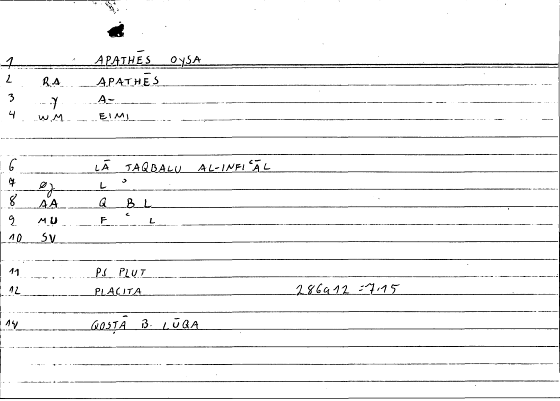 1 APATHĒS OySA
2 RA APATHĒS
3 y A-
4 WM EIMI
6 LĀ TAQBALU AL-INFIʿĀL
7 Øj L ʾ
8 AA Q B L
9 MU F ʿ L
10 SV
11 PS PLUT
12 PLACITA 286a12 = 7.15
14 QOSṬĀ B. LŪQA